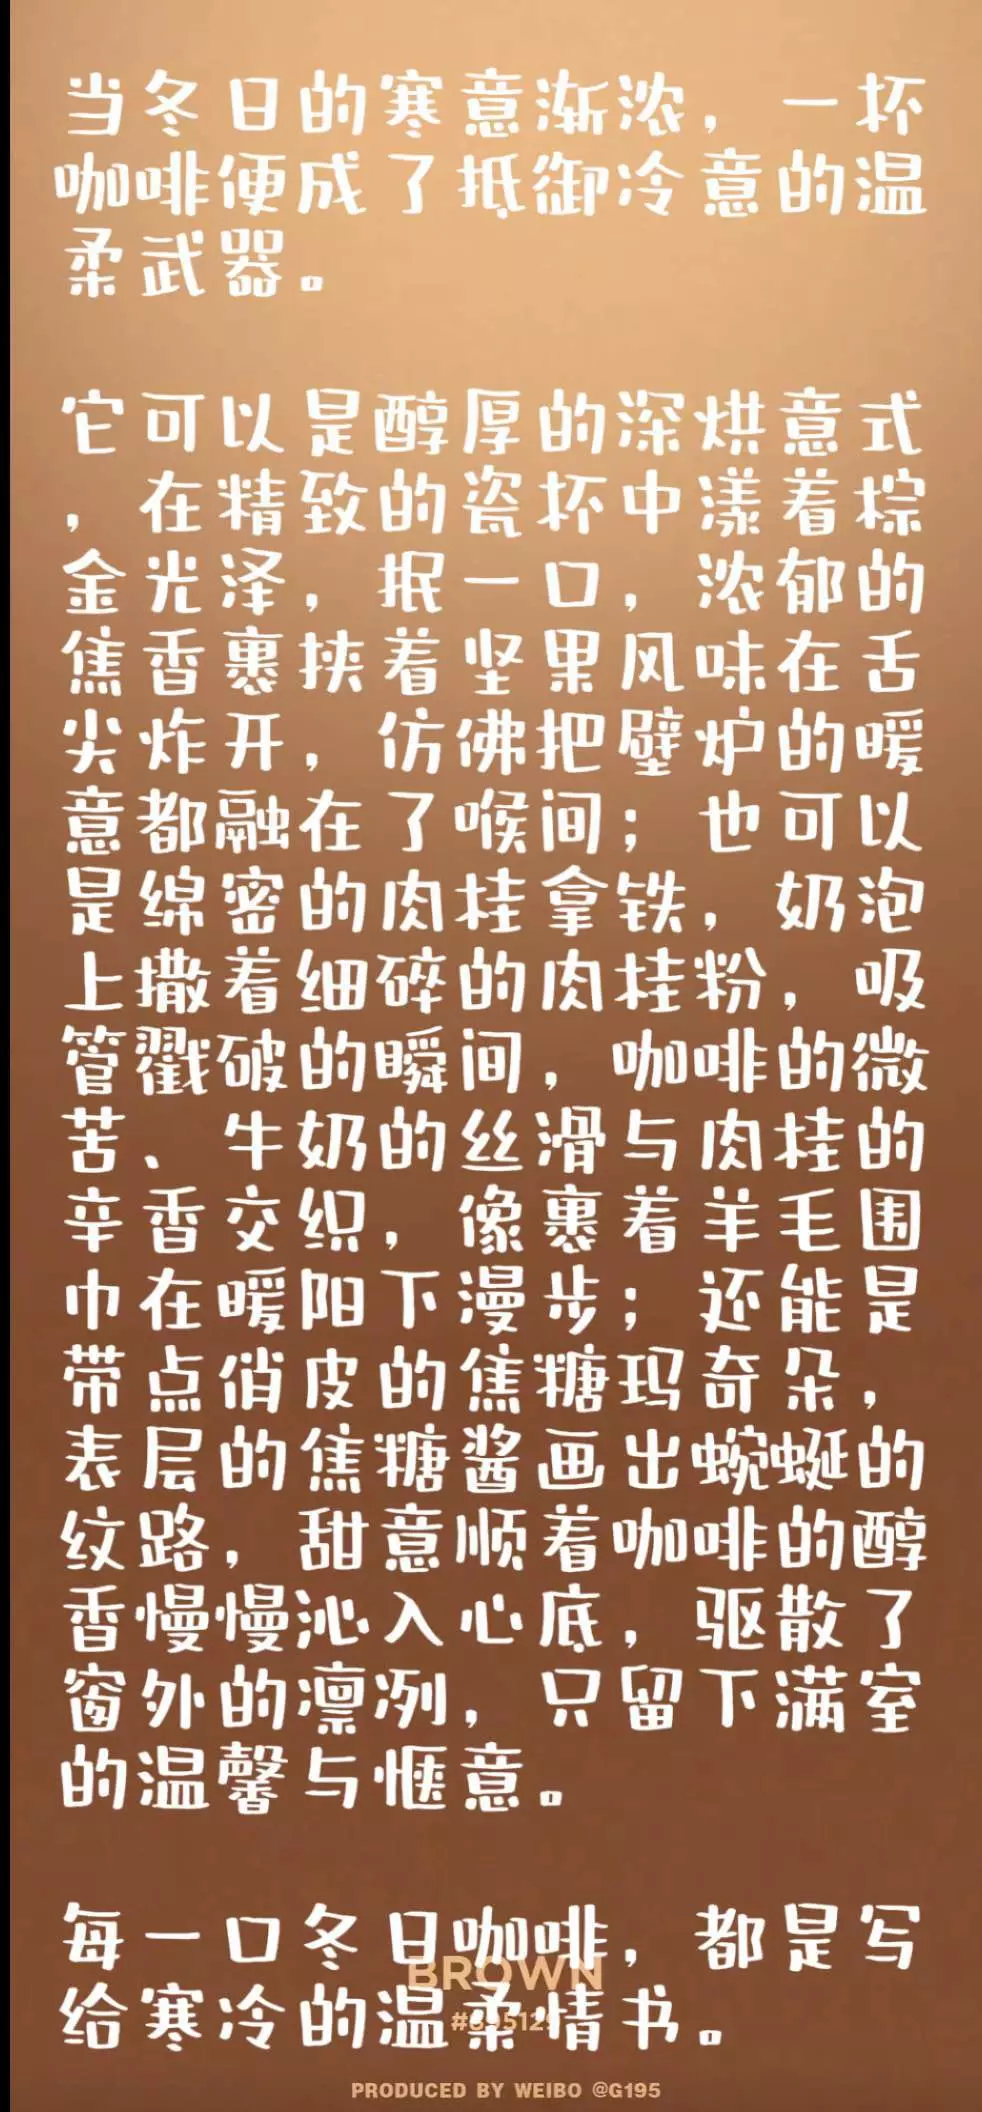 当冬日的寒意渐浓，一杯
咖啡便成了抵御冷意的温
柔武器。
它可以是醇厚的深烘意式
，在精致的瓷杯中漾着棕
金光泽，抿一口，浓郁的
焦香裹挟着坚果风味在舌
尖炸开，仿佛把壁炉的暖
意都融在了喉间；也可以
是绵密的肉桂拿铁，奶泡
上撒着细碎的肉桂粉，吸
管戳破的瞬间，咖啡的微
苦、牛奶的丝滑与肉桂的
辛香交织，像裹着羊毛围
巾在暖阳下漫步；还能是
带点俏皮的焦糖玛奇朵，
表层的焦糖酱画出蜿蜒的
纹路，甜意顺着咖啡的醇
香慢慢沁入心底，驱散了
窗外的凛冽，只留下满室
的温馨与惬意。
每一口冬日咖啡，都是写
BROWN
给寒冷的温柔情书。
PRODUCED BY WEIBO @G195